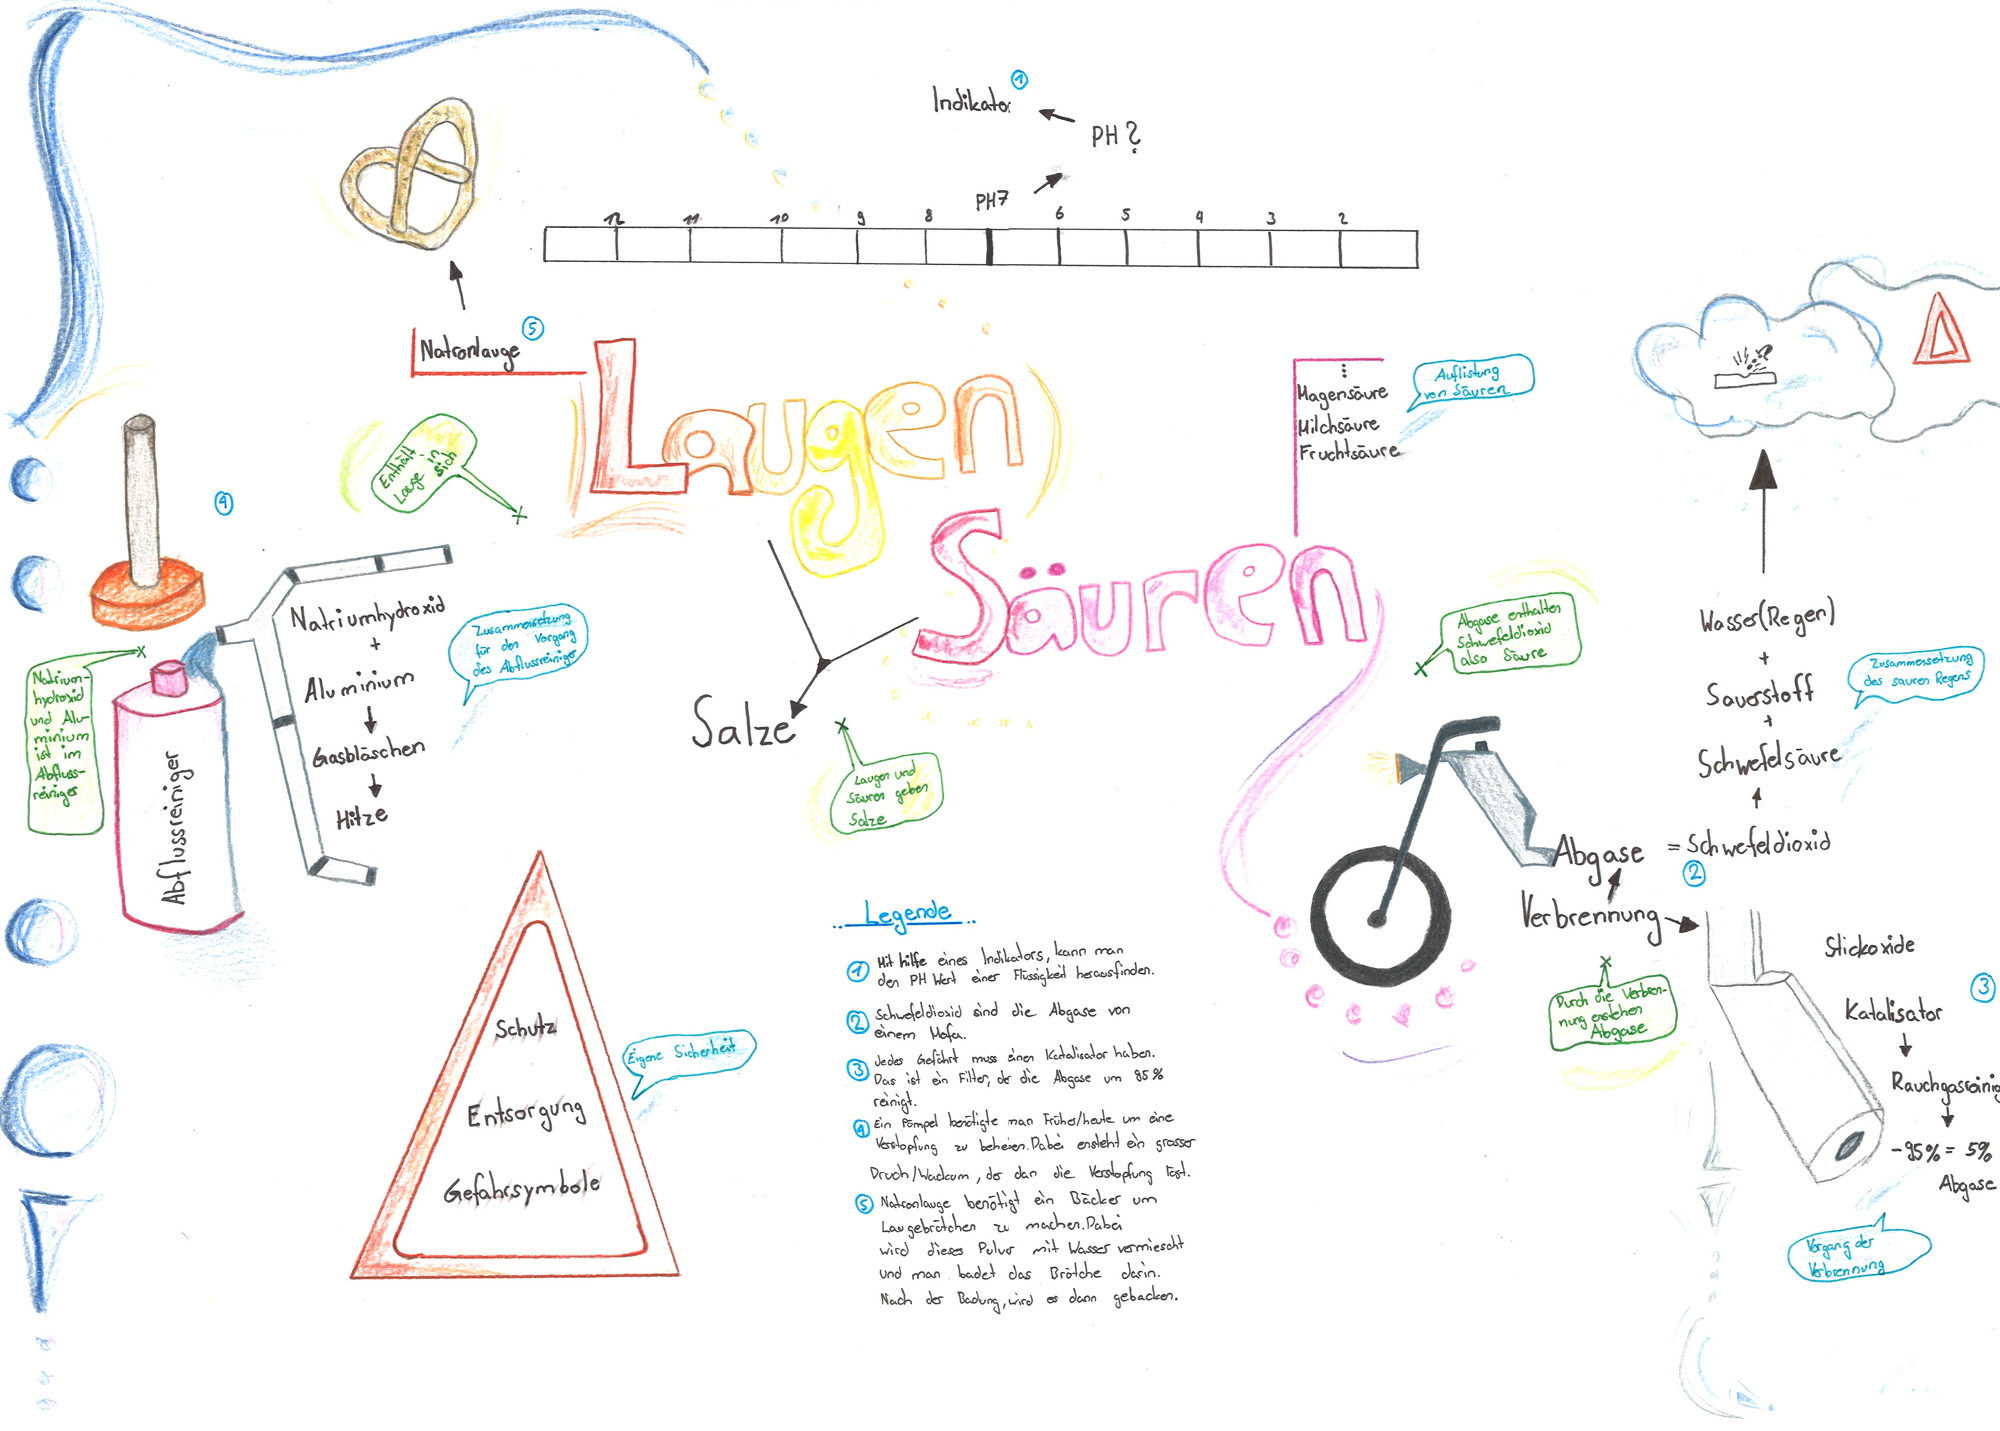 Indikator
1
PH?
PH7
12 11 10 9 8 6 5 4 3 2
Natronlauge
5
Laugen
Säuren
Enthält
Lauge in
sich
Magensäure
Milchsäure
Fruchtsäure
Auflistung
von Säuren
4
Natriumhydroxid
+
Aluminium
Gasbläschen
Hitze
Zusammensetzung
für den Vorgang
des Abflussreiniger
Natrium-
hydroxid
und Alu-
minium
ist im
Abfluss-
reiniger
Abflussreiniger
Salze
Laugen und
Säuren geben
Salze
Abgase enthalten
Schwefeldioxid
also Säure
Wasser(Regen)
+
Sauerstoff
+
Schwefelsäure
Zusammensetzung
des sauren Regens
Abgase = Schwefeldioxid
2
Verbrennung
Durch die Verbren-
nung enstehen
Abgase
Stickoxide
3
Katalisator
Rauchgasreinig
-95% = 5%
Abgase
Vorgang der
Verbrennung
Schutz
Entsorgung
Gefahrsymbole
Eigene Sicherheit
Legende
1 Mit hilfe eines Indikators, kann man
den PH Wert einer Flüssigkeit herausfinden.
2 Schwefeldioxid sind die Abgase von
einem Mofa.
3 Jedes Gefährt muss einen Katalisator haben.
Das ist ein Filter, der die Abgase um 95%
reinigt.
4 Ein Pömpel benötigte man Früher/heute um eine
Verstopfung zu beheben. Dabei ensteht ein grosser
Druch/Wackum, der dan die Verstopfung löst.
5 Natronlauge benötigt ein Bäcker um
Laugebrötchen zu machen. Dabei
wird dieses Pulver mit Wasser vermiescht
und man badet das Brötche darin.
Nach der Badung, wird es dann gebacken.